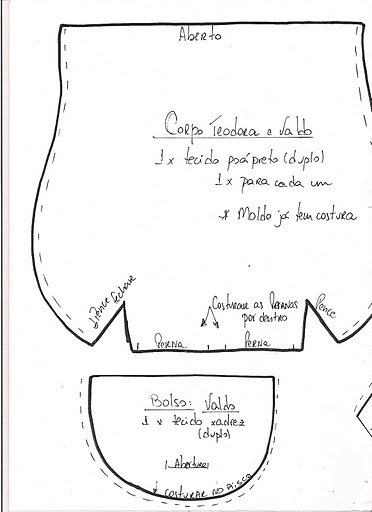 Aberto
Corpo Teodora e Valdo
1 x tecido poá preto (duplo)
1 x para cada um
* Molde já tem costura
Pence fechar
Costurar as Pernas
por dentro
Pence
PERNA
PERNA
Bolso: Valdo
1 x tecido xadrez
(duplo)
Abertura
* costurar no Risco